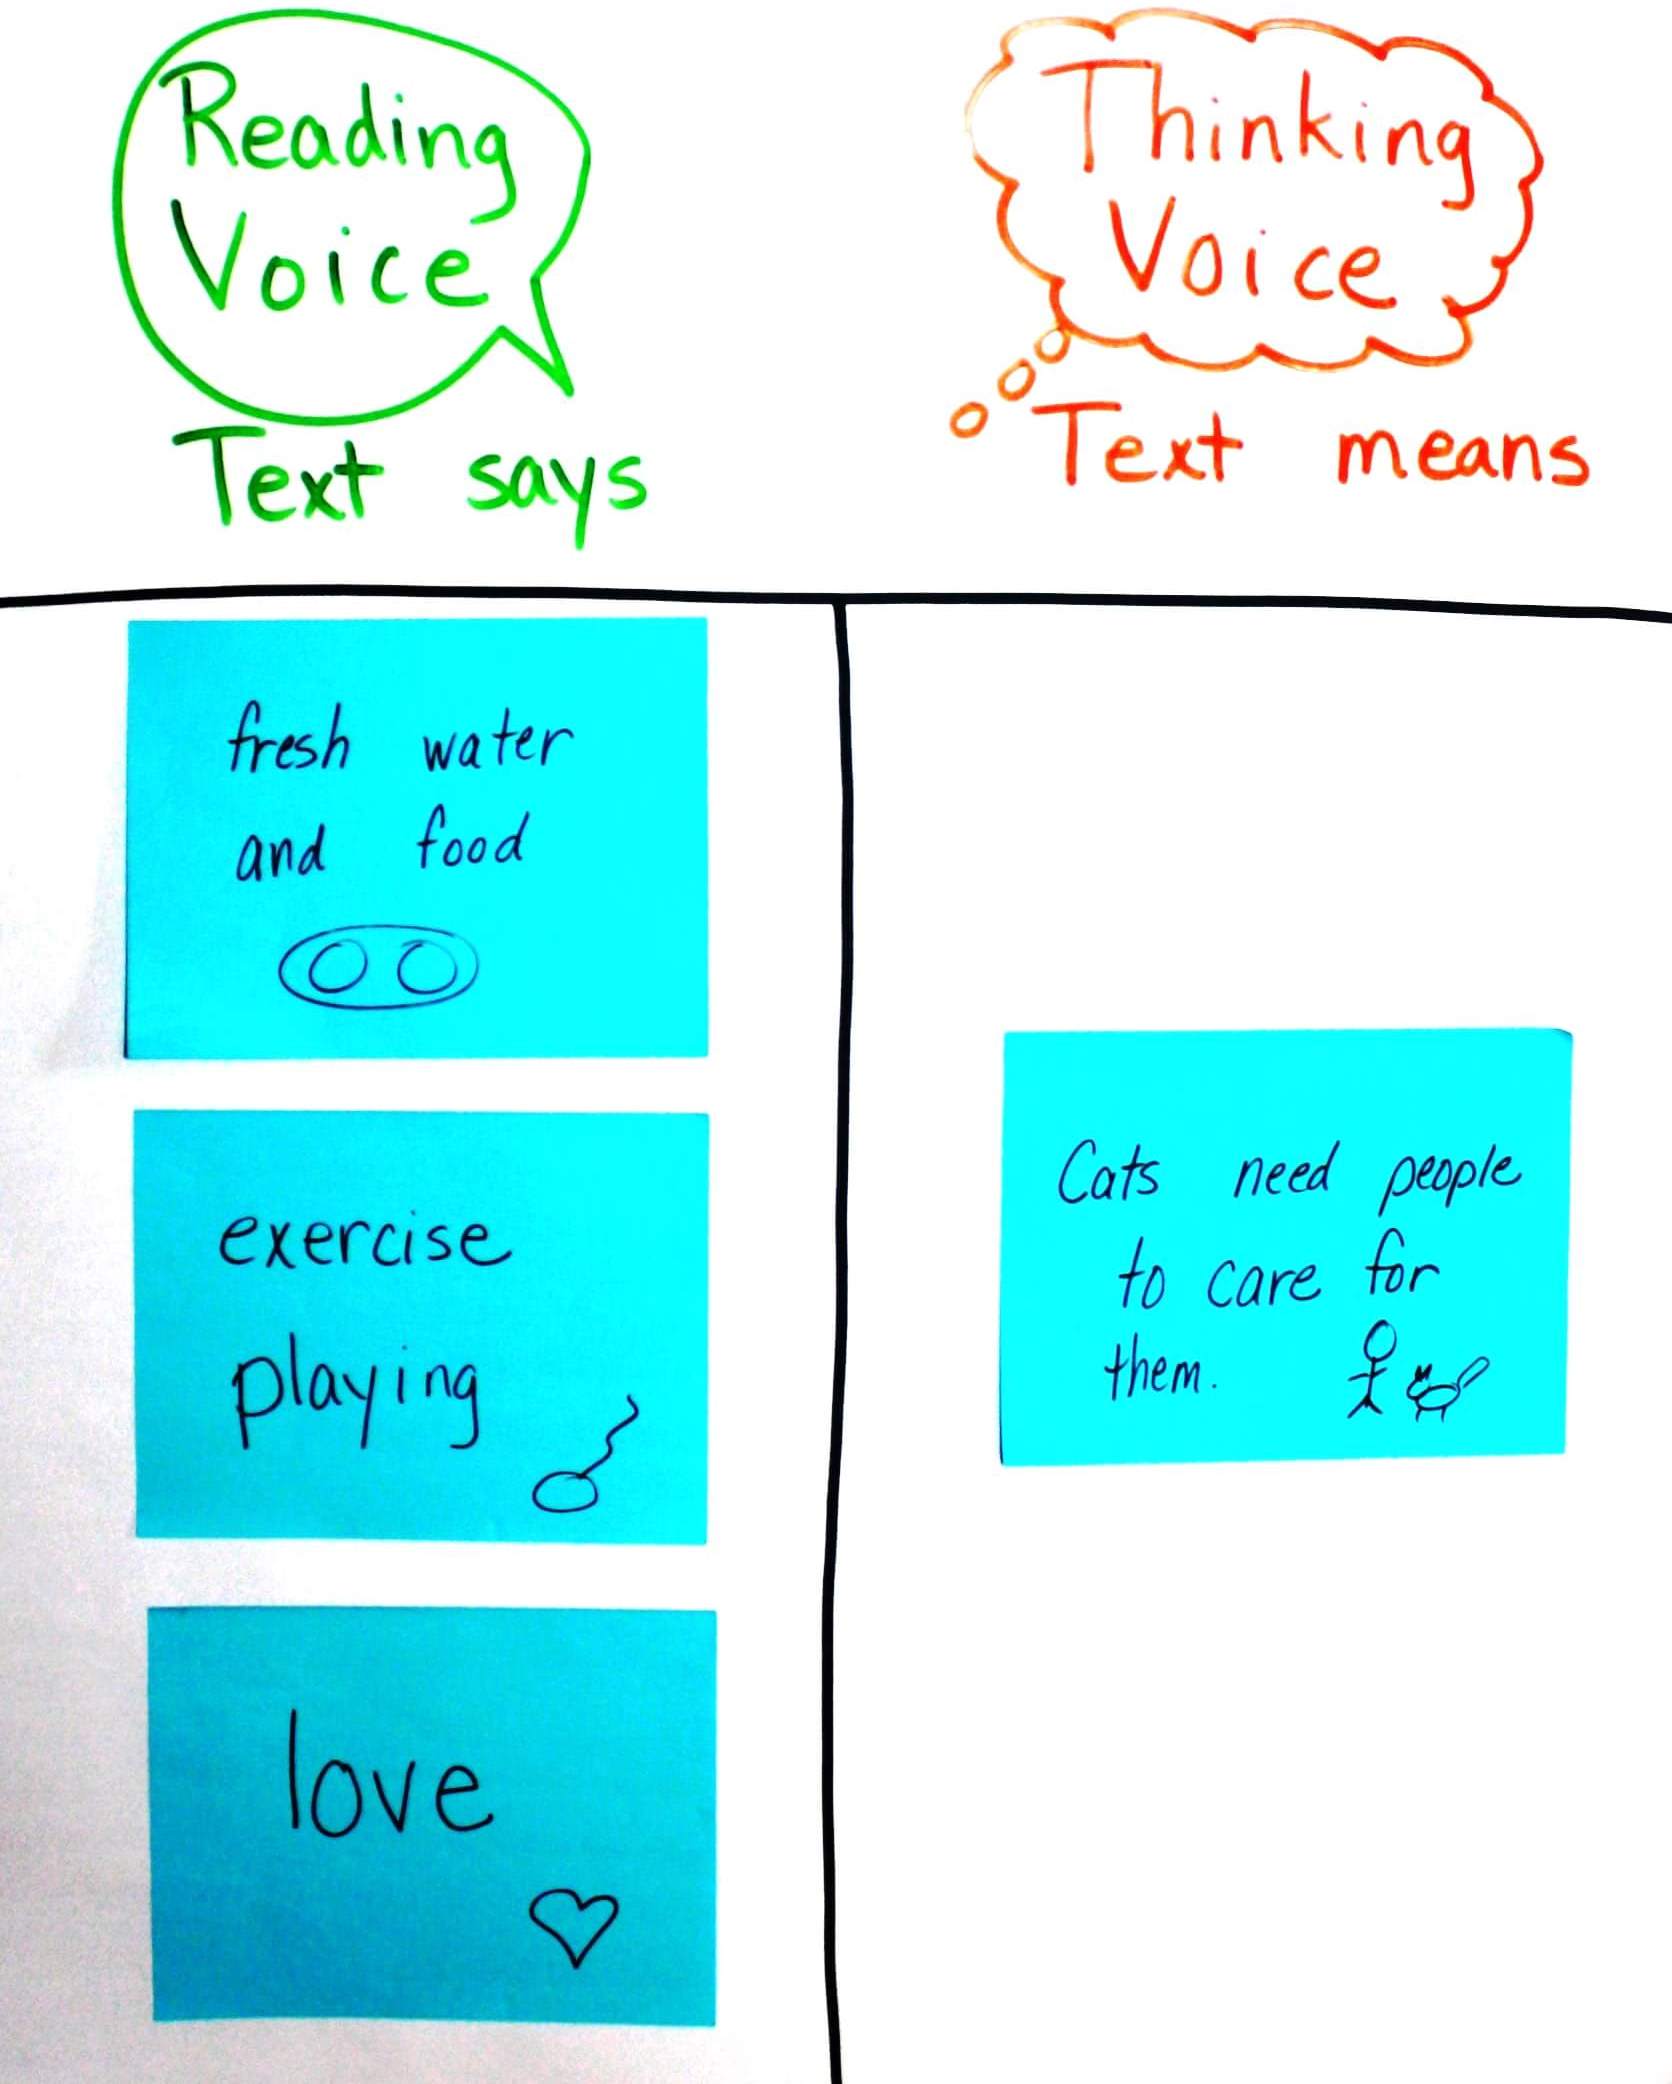 Reading
Voice
Text says
Thinking
Voice
Text means
fresh water
and food
exercise
playing
love
Cats need people
to care for
them.